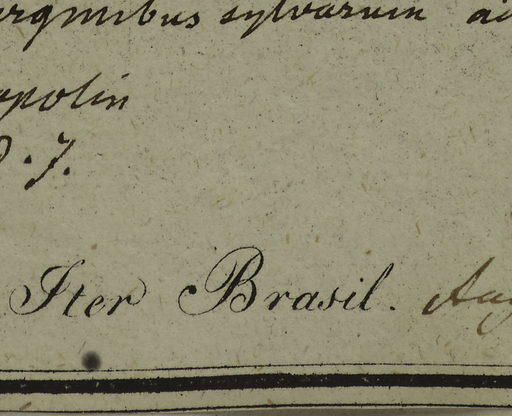 arginibus sylvarum
apolin
. 7.
Iter Brasil. Aug